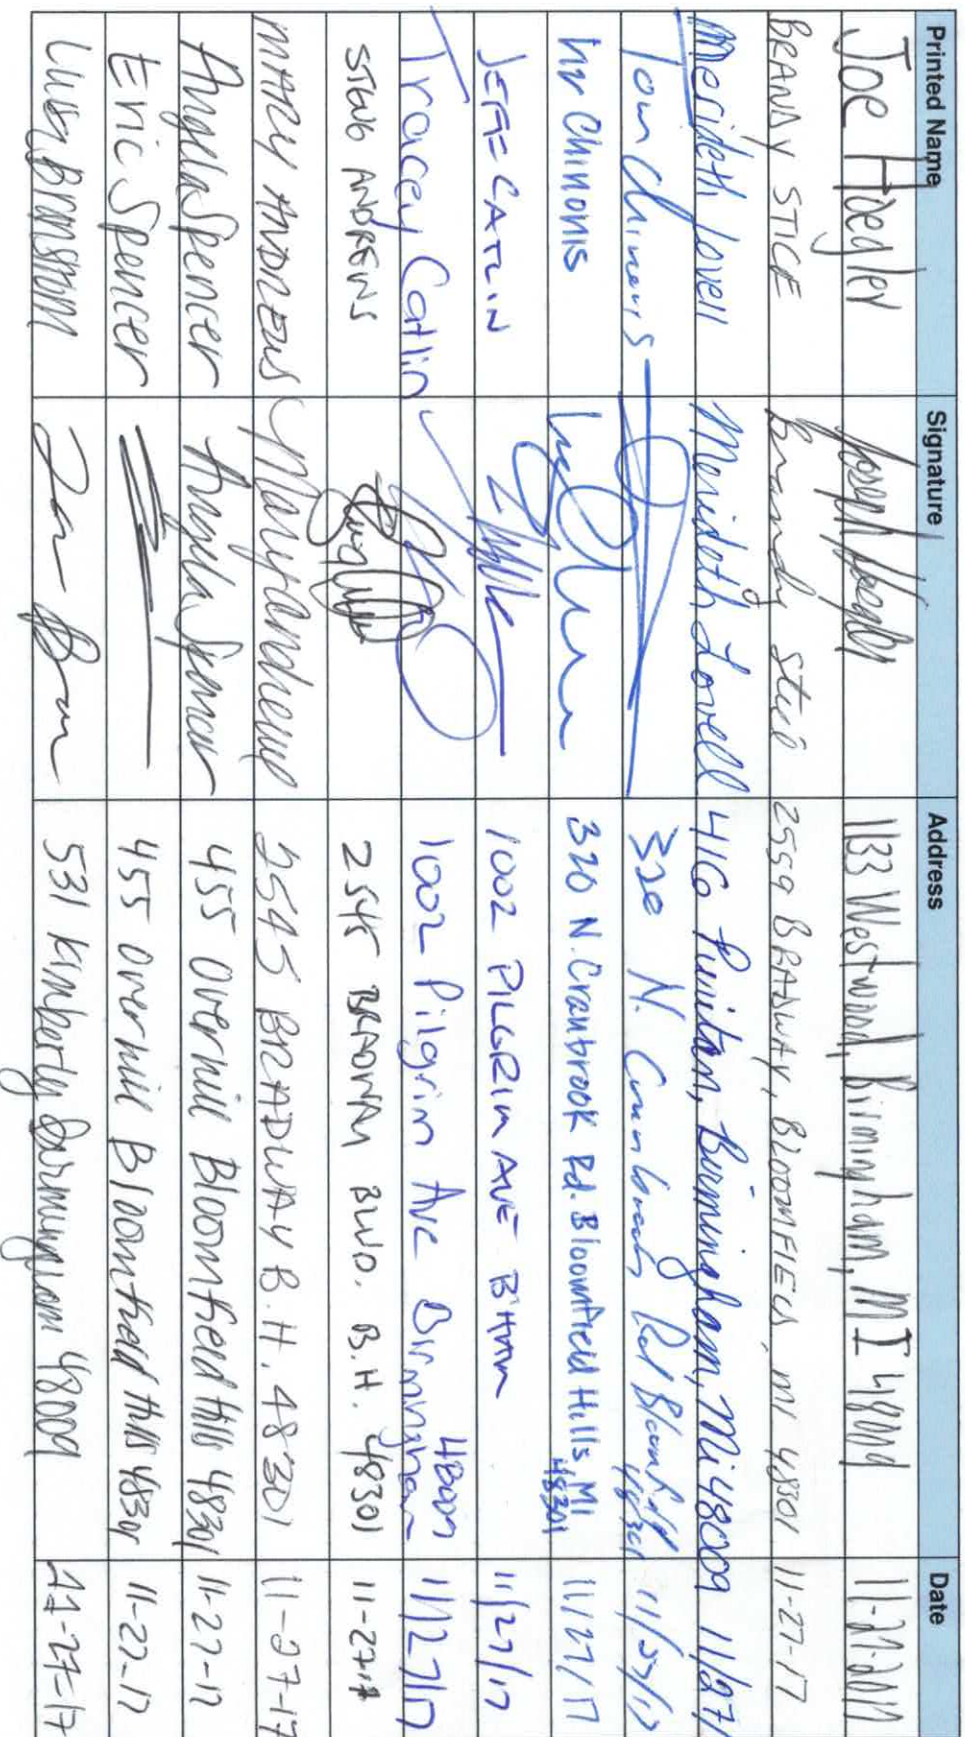 Printed Name Signature Address Date
Joe Hoegler Joseph Hoegler 1133 Westwood, Birmingham, MI 48009 11-27-2017
BRANDY STICE Brandy Stice 2559 BRADWAY, BLOOMFIELD, MI 48301 11-27-17
Merideth Lovell Merideth Lovell 416 Puritan, Birmingham, Mi 48009 11/27/
Tom Chinonis 320 N. Cranbrook Rd Bloomfield 48301 11/27/17
Chinonis 320 N. Cranbrook Rd. Bloomfield Hills, MI 48301 11/27/17
JEFF CATLIN 1002 PILGRIM AVE B'HAM 11/27/17
Tracey Catlin 1002 Pilgrim Ave Birmingham 48009 11/27/17
ANDREWS 2545 BRADWAY BLVD. B.H. 48301 11-27-17
MARY ANDREWS Mary Andrews 2545 BRADWAY B.H. 48301 11-27-17
Angela Spencer Angela Spencer 455 Overhill Bloomfield Hills 48301 11-27-17
Eric Spencer 455 Overhill Bloomfield Hills 48301 11-27-17
531 Kimberly Birmingham 48009 11-27-17